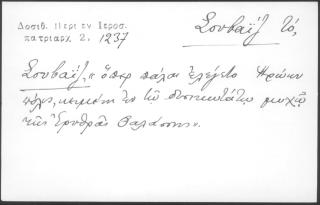 Δοσιθ. Περι εν Ιεροσ.
πατριαρχ 2, 1237
Σουβαΐζ τό,
Σουβαΐζ, "ὅπερ πάλαι ἐλέγετο Ἡρώων
πόλις, κειμένη ἐν τῷ δυτικωτάτῳ μυχῷ
τῆς Ἐρυθρᾶς θαλάσσης".